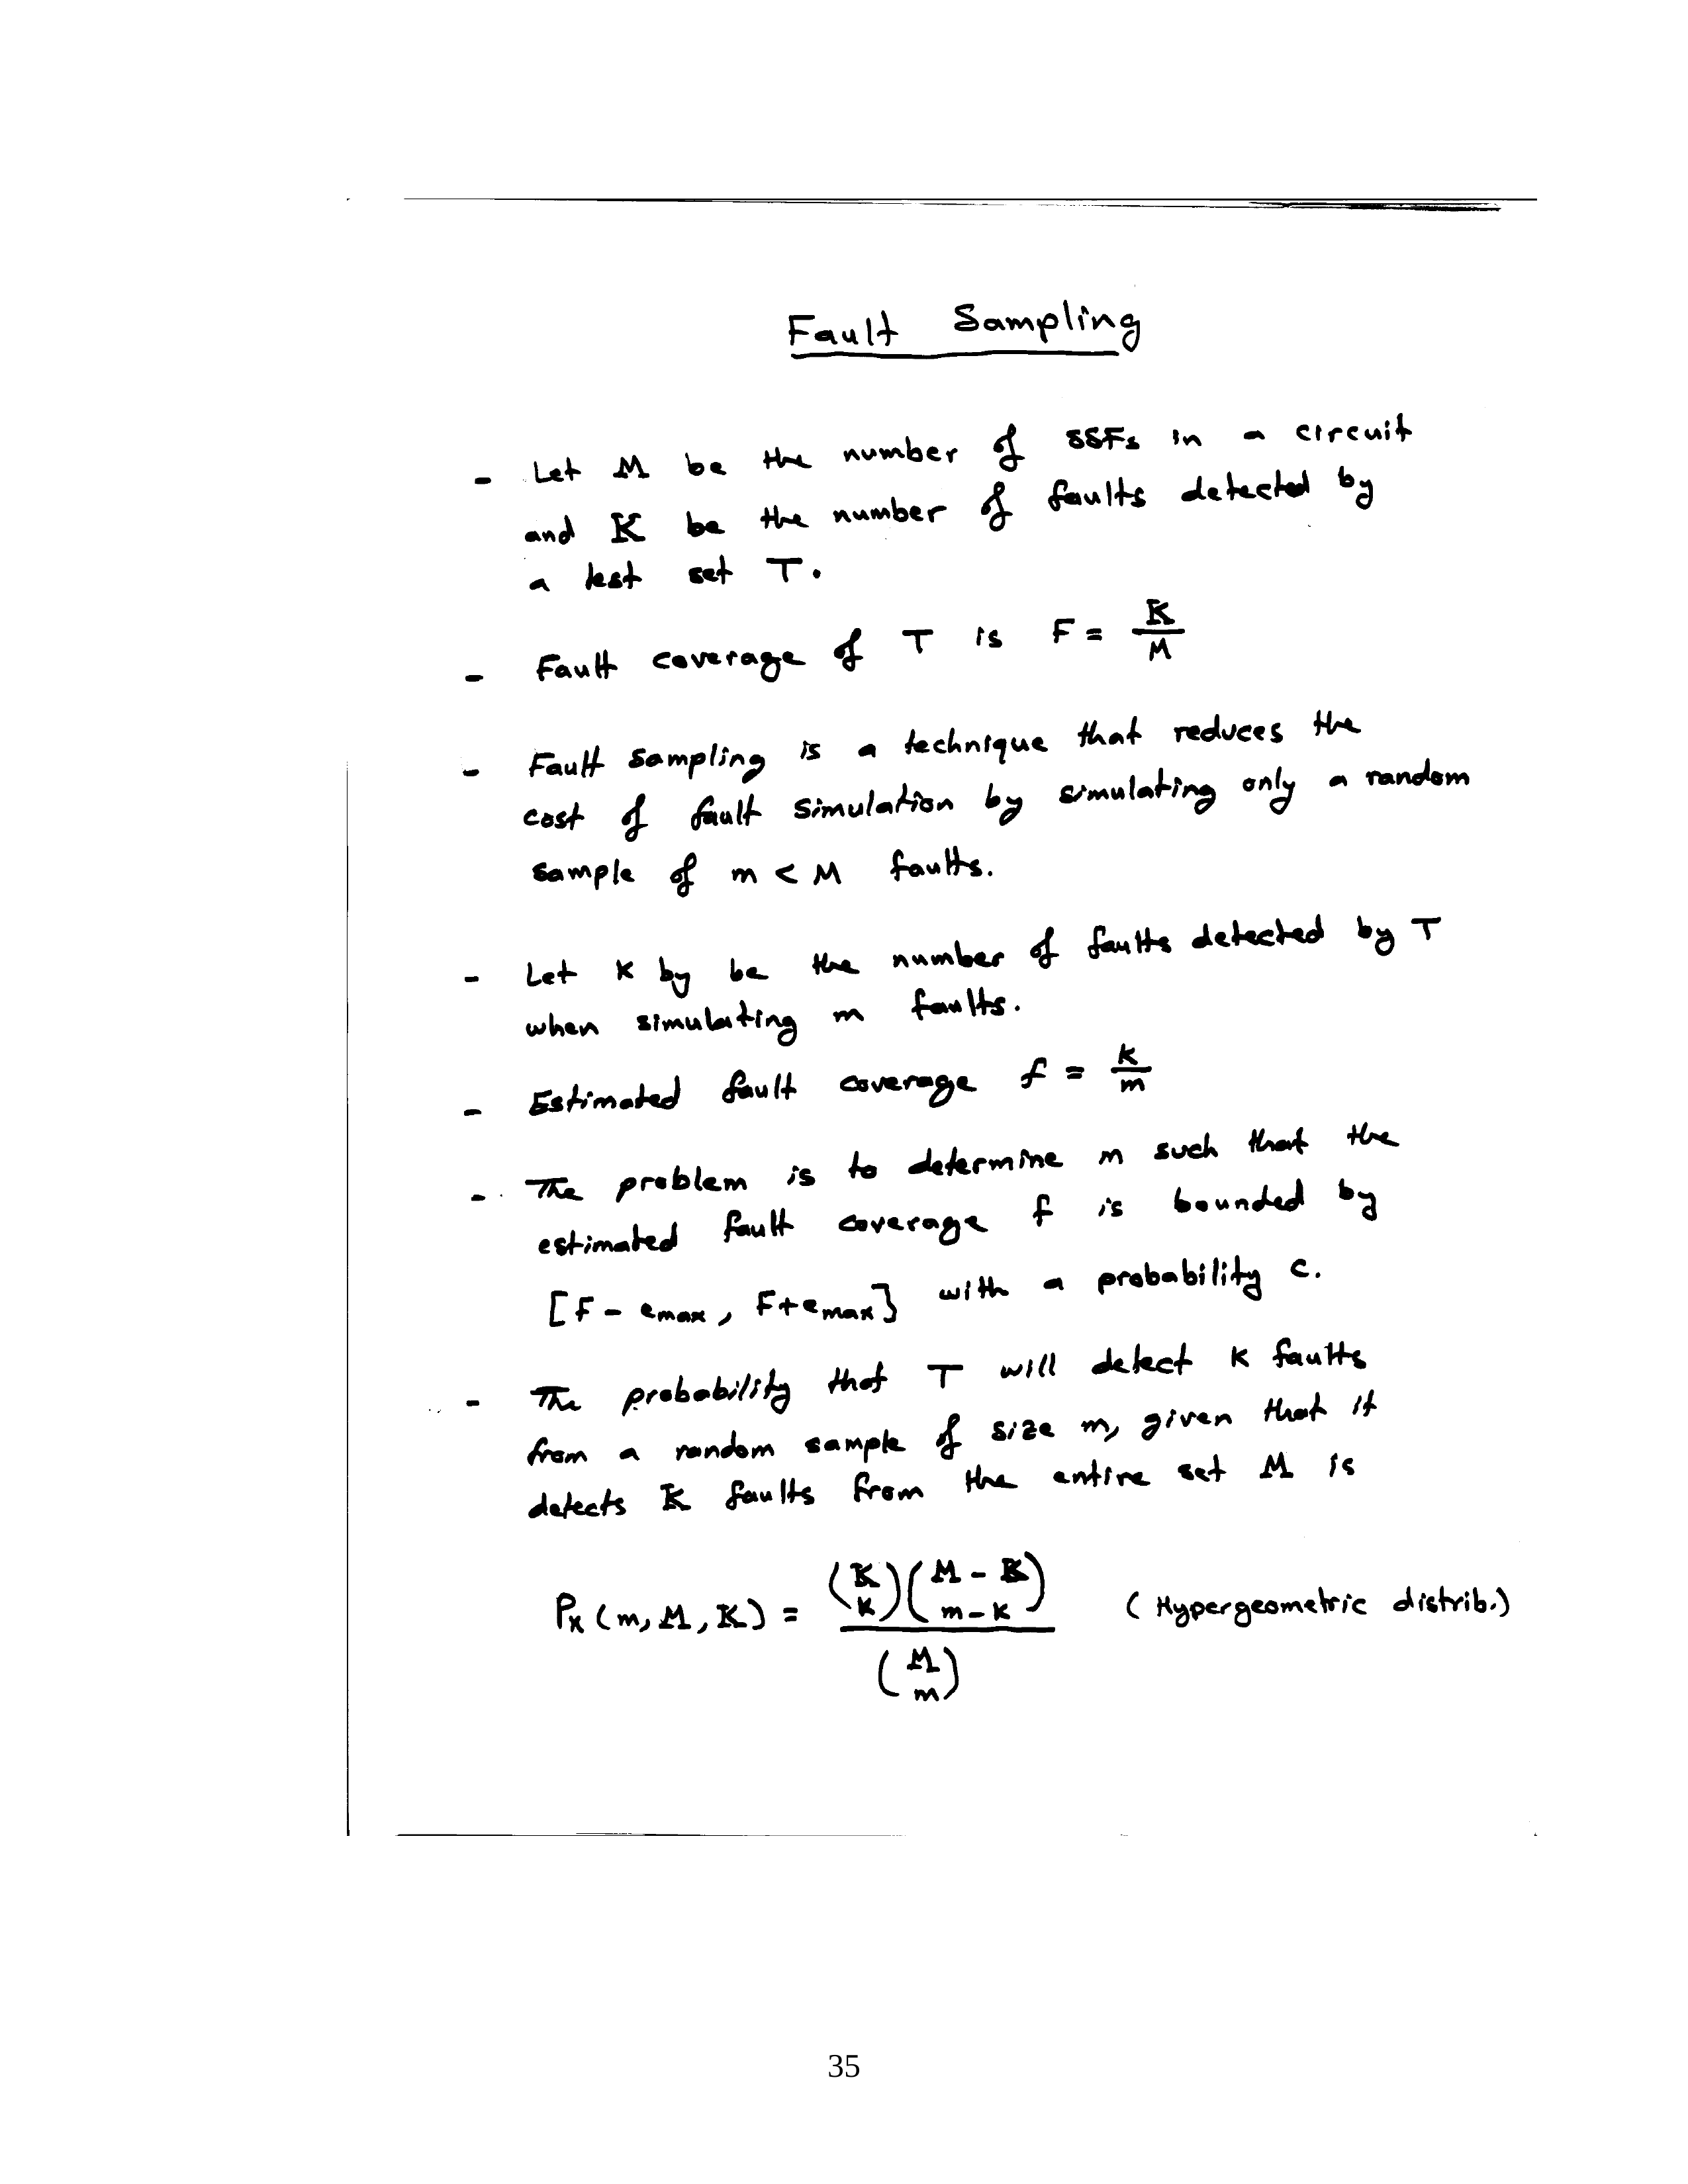 Fault Sampling
- Let M be the number of SSFs in a circuit
and K be the number of faults detected by
a test set T.
- Fault coverage of T is F = K/M
- Fault sampling is a technique that reduces the
cost of fault simulation by simulating only a random
sample of m < M faults.
- Let k by be the number of faults detected by T
when simulating m faults.
- Estimated fault coverage f = k/m
- The problem is to determine m such that the
estimated fault coverage f is bounded by
[F - emax, F+emax] with a probability c.
- The probability that T will detect k faults
from a random sample of size m, given that it
detects K faults from the entire set M is
Pk (m, M, K) = (K k)(M - K m - k) / (M m) (Hypergeometric distrib.)
35